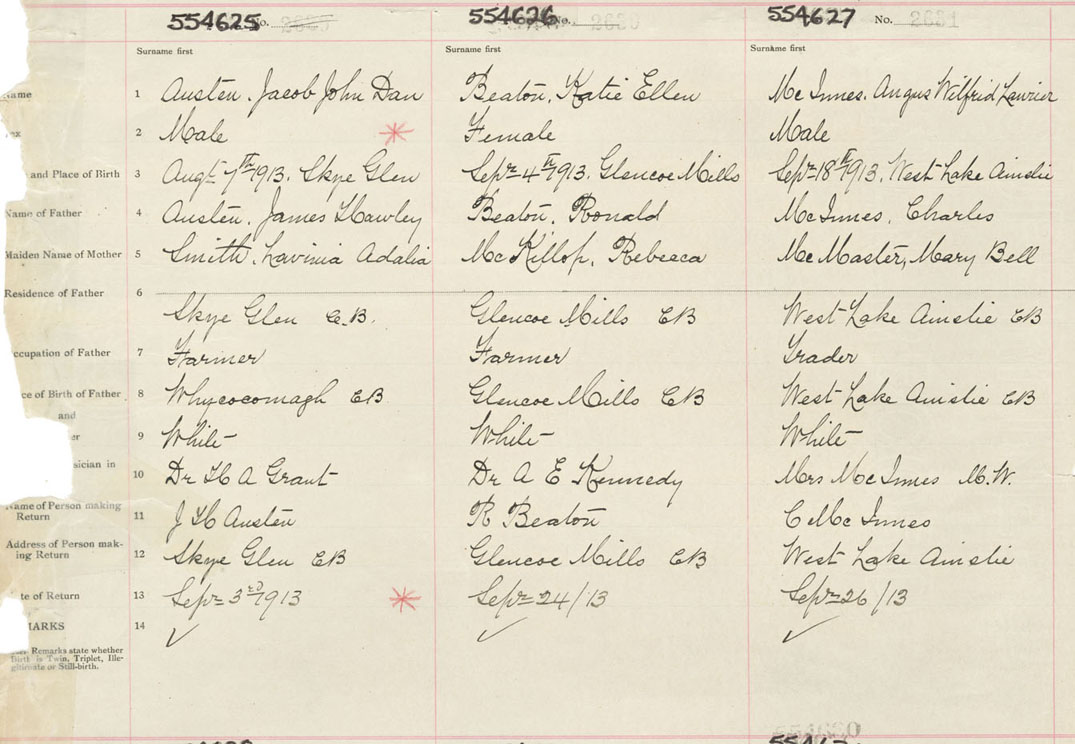 554625 No. 554626 No. 2630 554627 No. 2631
Surname first Surname first Surname first
Name 1 Austen, Jacob John Dan Beaton, Katie Ellen Mc Innes, Angus Wilfrid Laurier
2 Male Female Male
and Place of Birth 3 Augt 7th 1913. Skye Glen Sepr 4th 1913. Glencoe Mills Sepr 18th 1913. West Lake Ainslie
Name of Father 4 Austen, James Hawley Beaton, Ronald McInnes, Charles
Maiden Name of Mother 5 Smith, Lavinia Adalia Mc Killop, Rebecca Mc Master, Mary Bell
Residence of Father 6
Skye Glen C.B. Glencoe Mills CB West Lake Ainslie CB
ccupation of Father 7 Farmer Farmer Trader
ce of Birth of Father 8 Whycocomagh CB Glencoe Mills CB West Lake Ainslie CB
and
er 9 White White White
sician in
10 Dr H A Grant Dr A E Kennedy Mrs McInnes M.W.
Name of Person making
Return 11 J H Austen R Beaton C McInnes
Address of Person mak-
ing Return 12 Skye Glen CB Glencoe Mills CB West Lake Ainslie
te of Return 13 Sepr 3rd 1913 Sepr 24/13 Sepr 26/13
MARKS 14 ✓ ✓ ✓
Remarks state whether
Birth is Twin, Triplet, Ille-
gitimate or Still-birth.